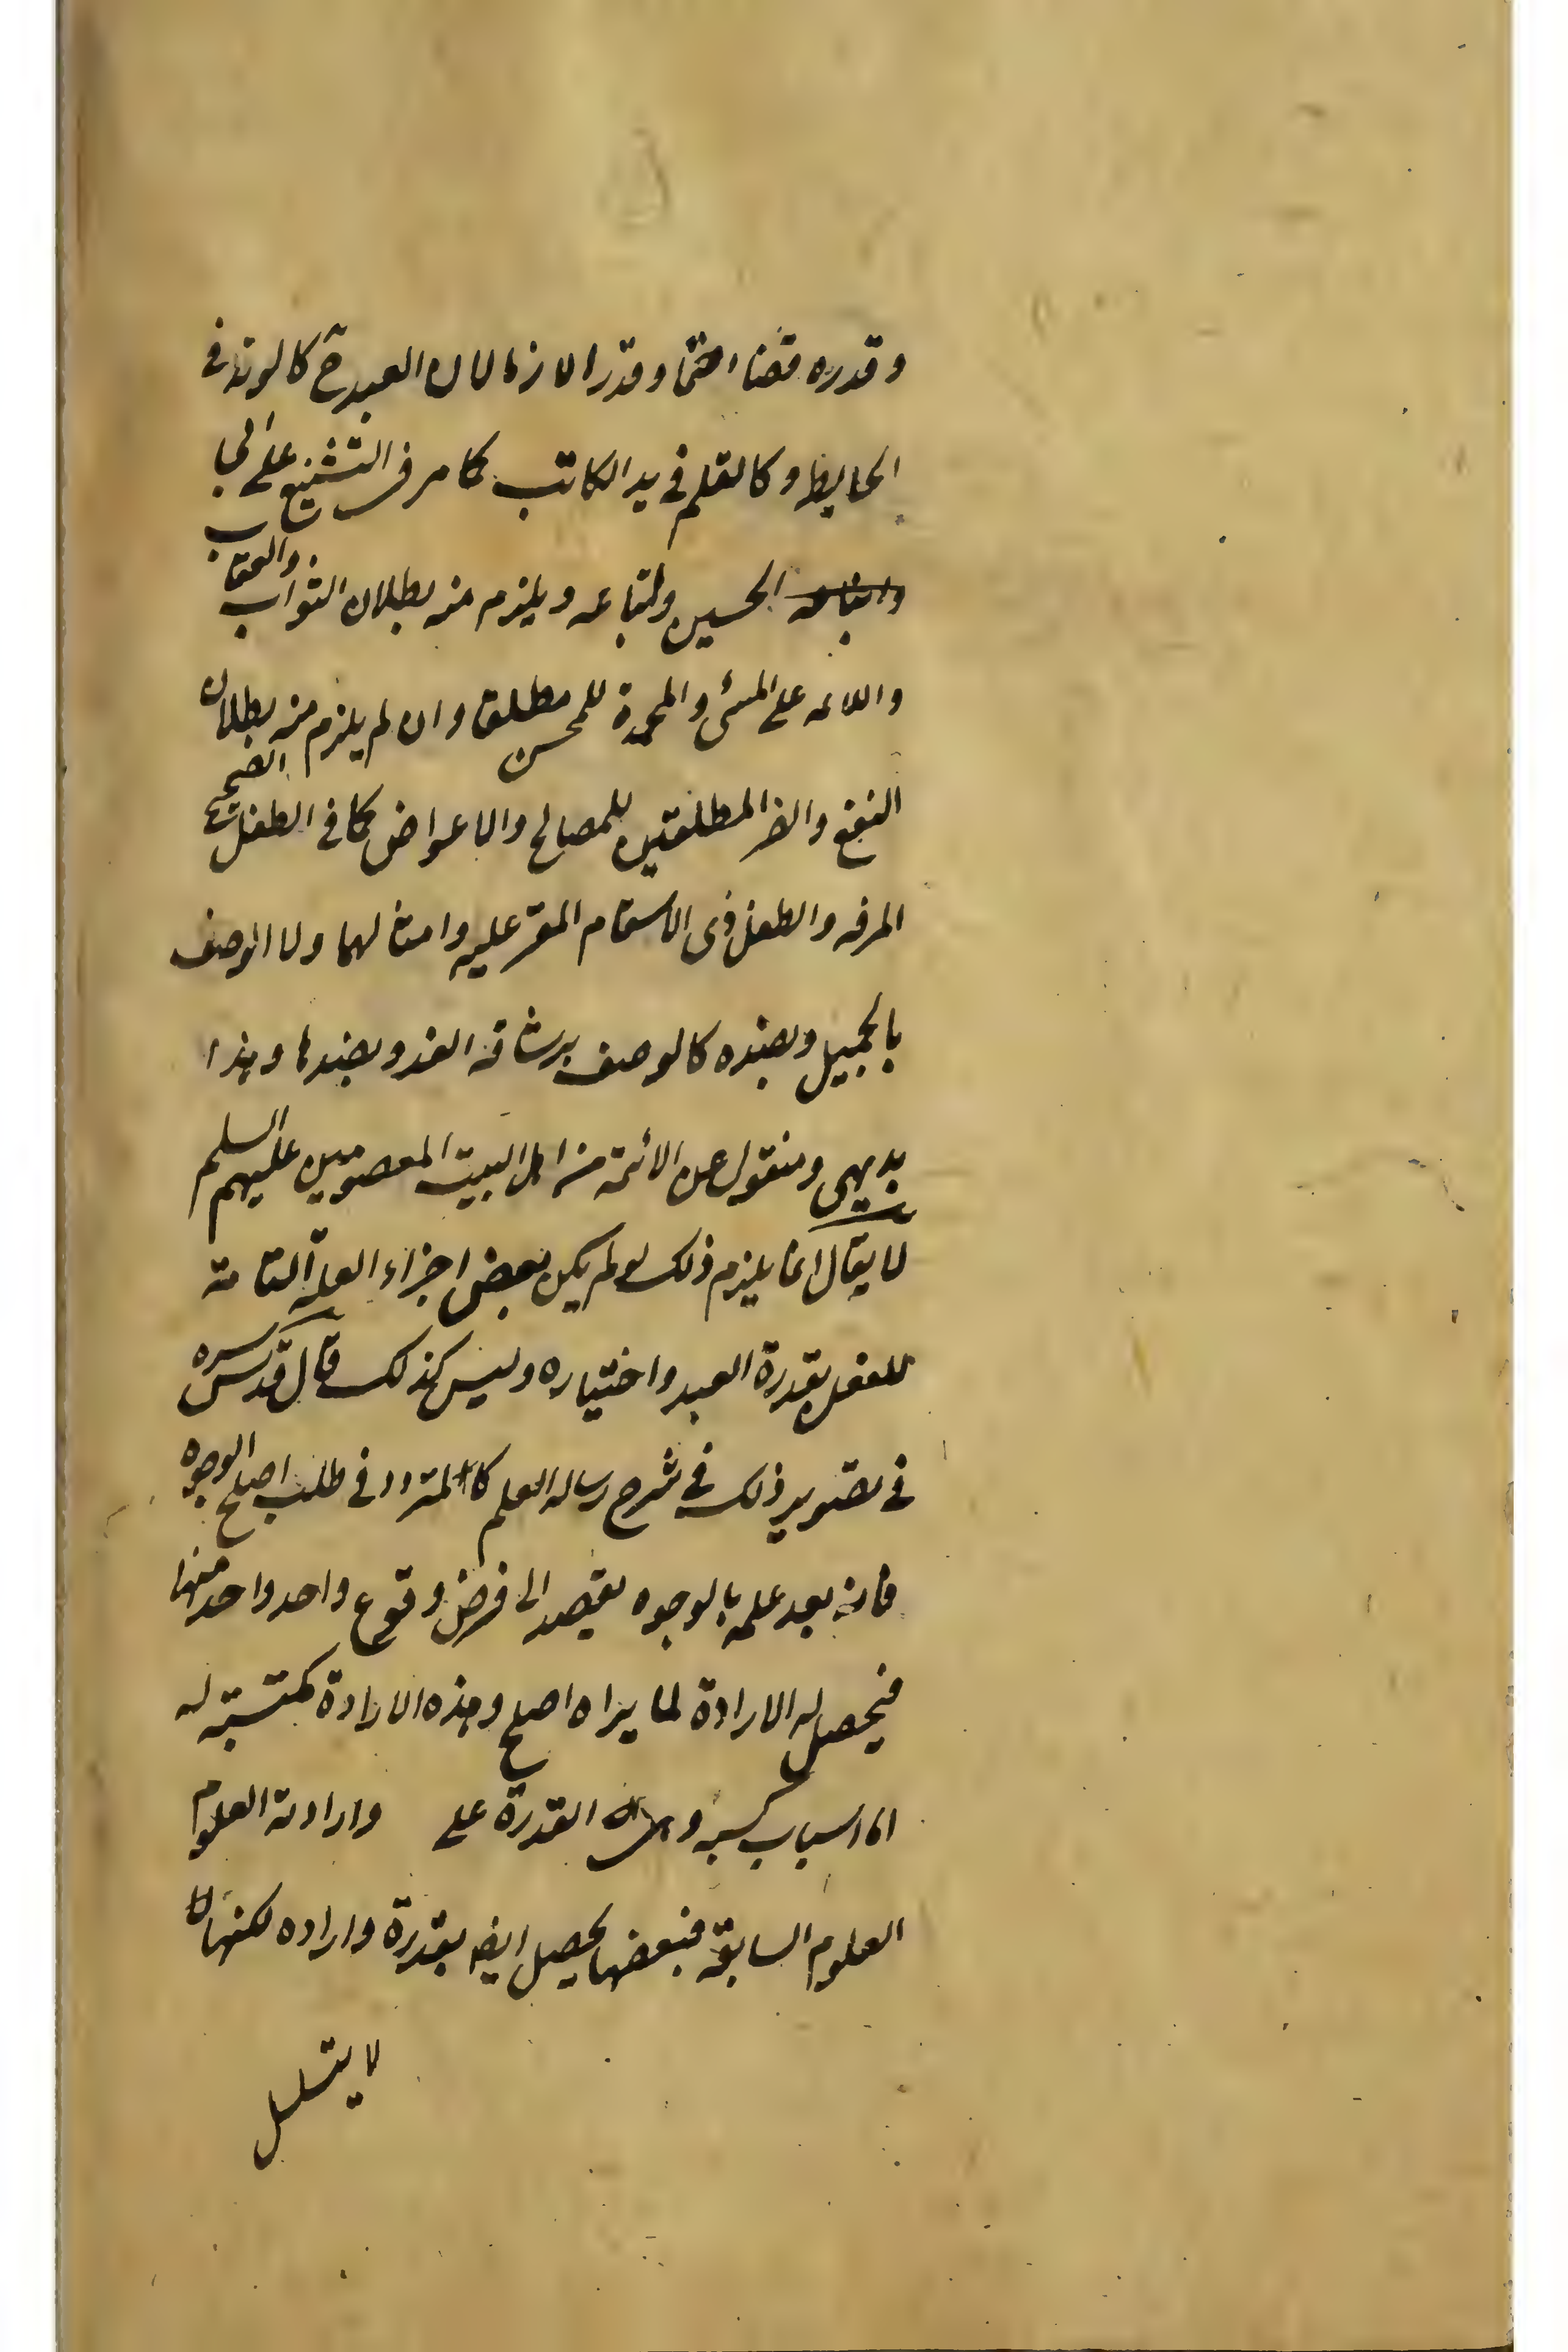 وقدره قضاء حتما وقدرا لازما لان العبد ح كالوتد فى
الحايط وكالقلم فى يد الكاتب كما مر فى التشنيع على ابى
الحسين واتباعه ويلزم منه بطلان الثواب والعقاب
واللائمة على المسئ والمحمدة للمحسن مطلقا وان لم يلزم منه بطلان
النفع والضر المطلقين للمصالح والاعواض كما فى الطفل الصحيح
المرفه والطفل ذى الاسقام المقتر عليه وامثالهما ولا الوصف
بالجميل وبضده كالوصف برشاقة القد وبضدها وهذا
بديهى ومنقول عن الائمة من اهل البيت المعصومين عليهم السلم
لا يقال انما يلزم ذلك لو لم يكن بعض اجزاء العلة التامة
للفعل بقدرة العبد واختياره وليس كذلك قال قدس سره
فى تصوير ذلك فى شرح رسالة العلم كالمتردد فى طلب اصلح الوجوه
فانه بعد علمه بالوجوه يقصد الى فرض وقوع واحد واحد منها
فيحصل له الارادة لما يراه اصلح وهذه الارادة مكتسبة له
اما اسباب كسبه و القدرة على وارادته العلوم
العلوم السابقة فبعضها يحصل ايضا بقدرة وارادة لكنها
لا يتسلسل